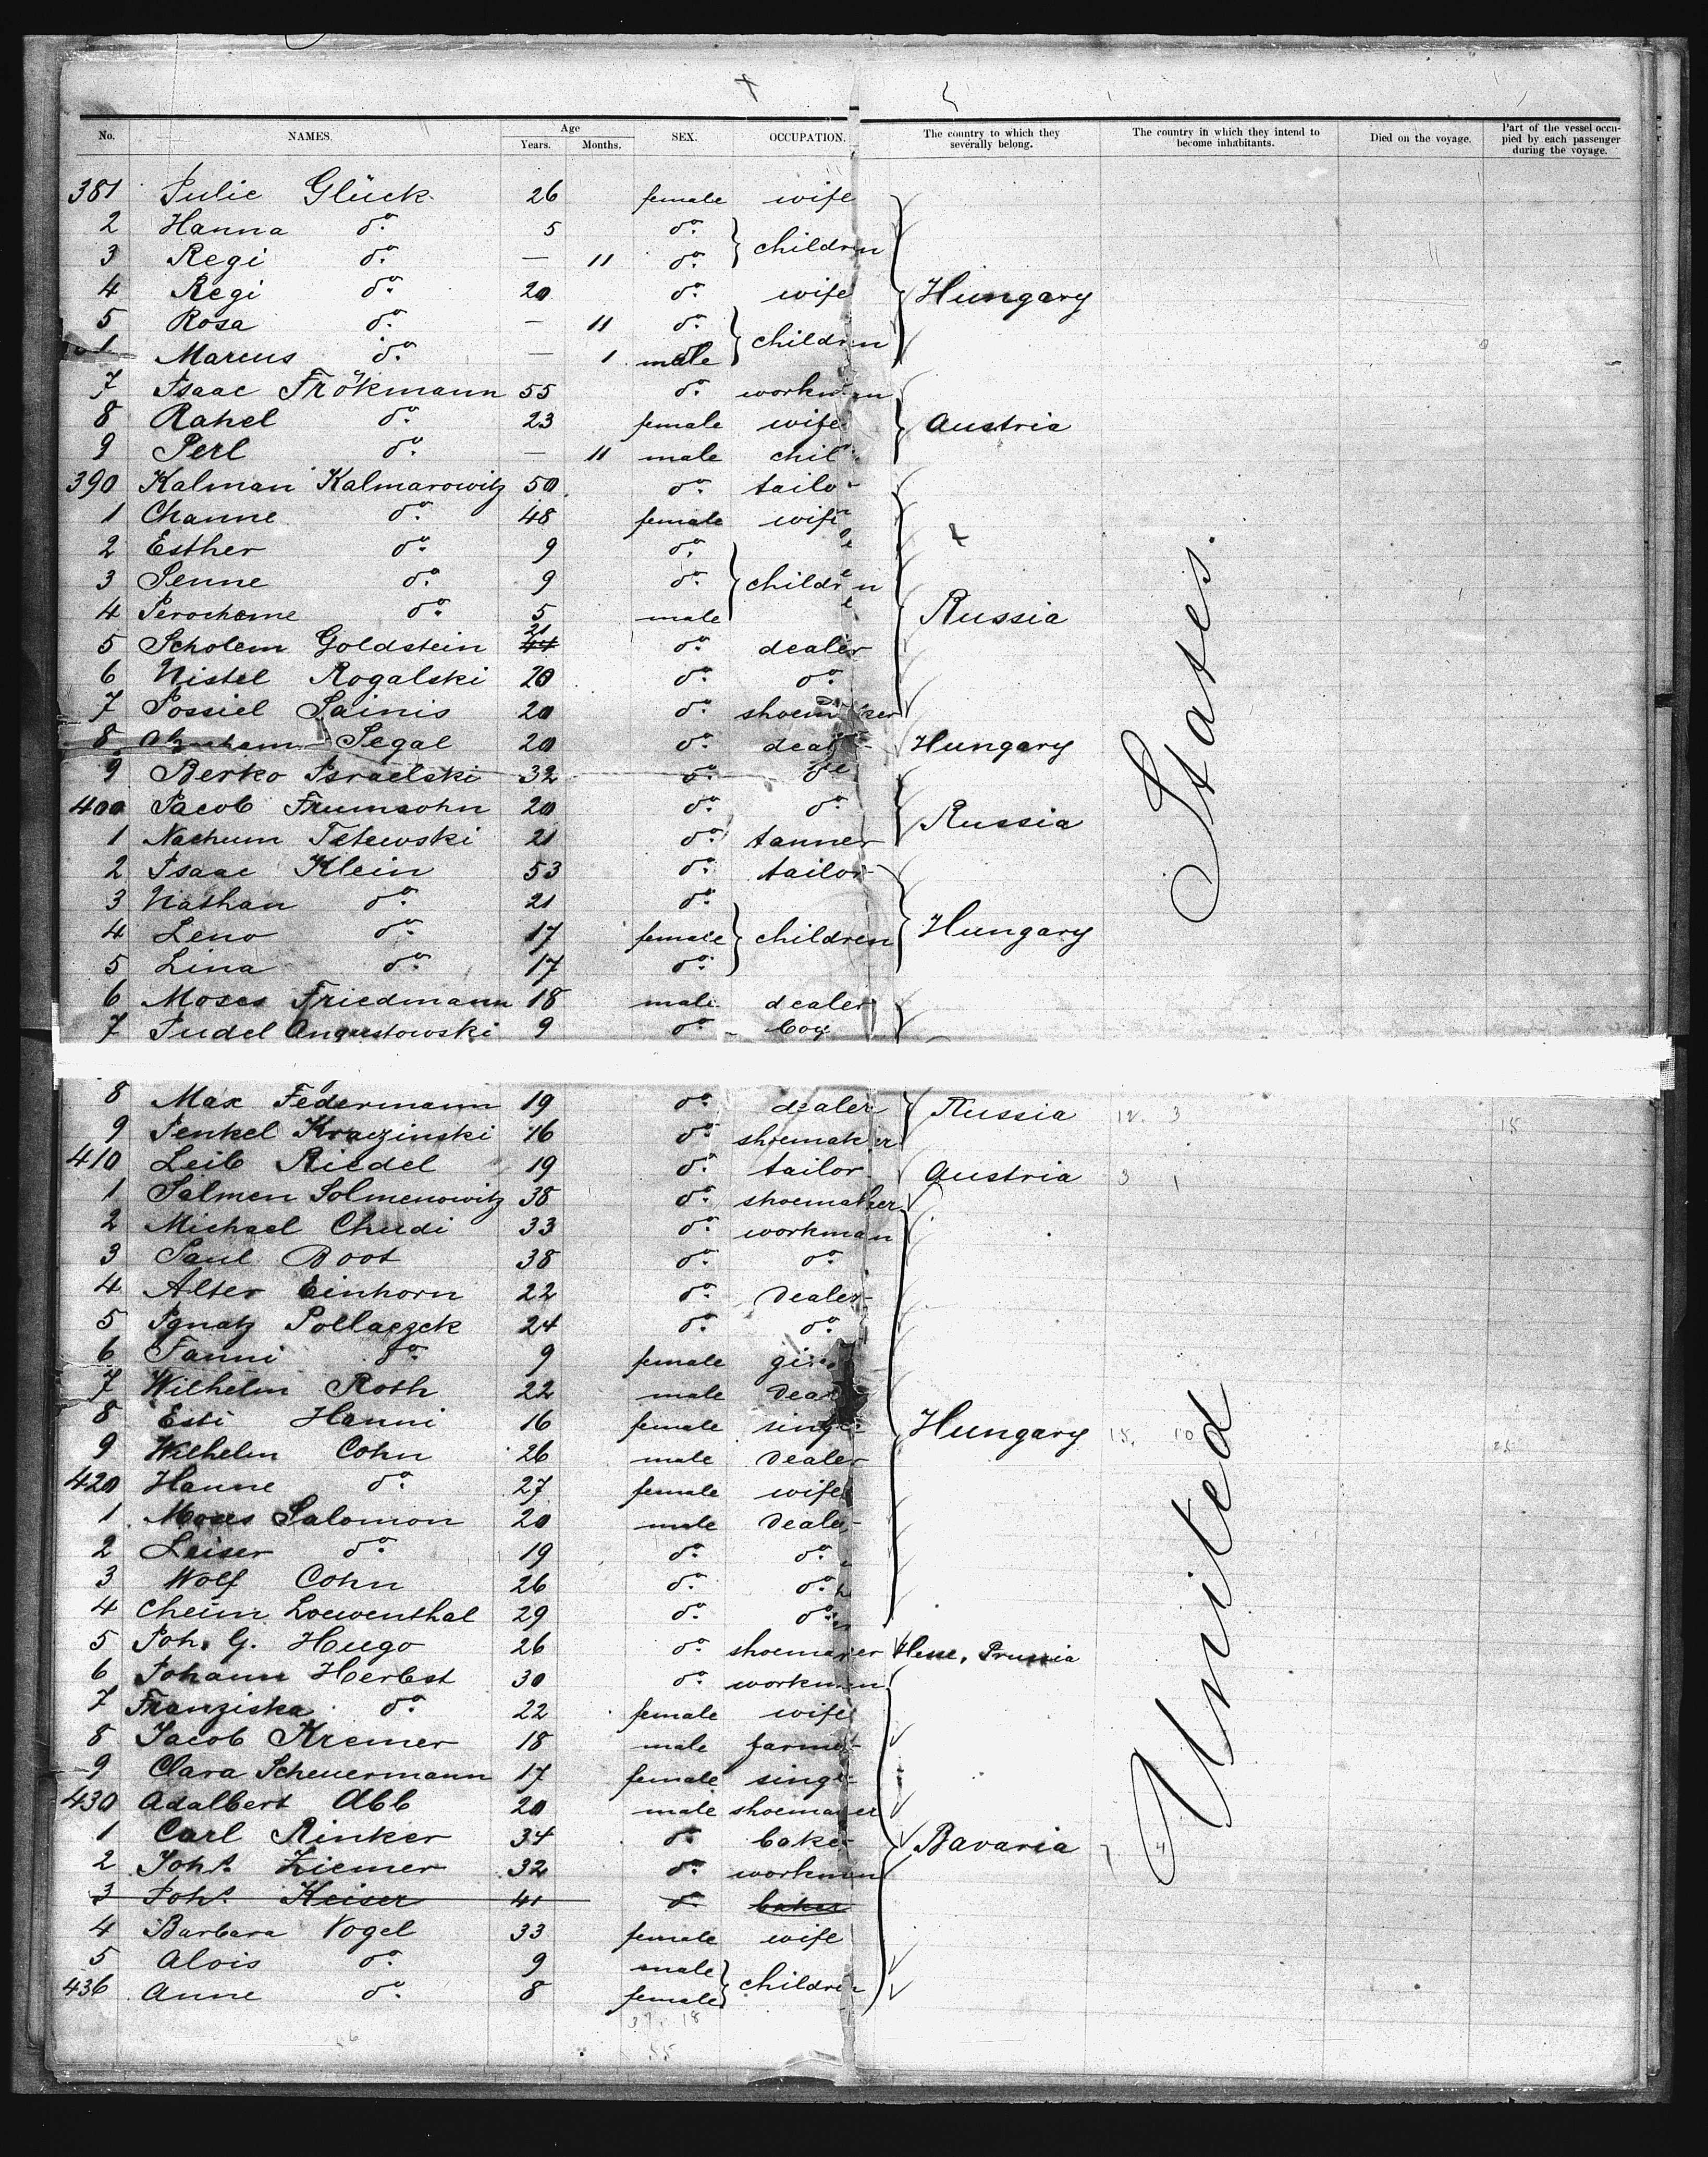 No. NAMES. Age Years. Months. SEX. OCCUPATION. The country to which they severally belong. The country in which they intend to become inhabitants. Died on the voyage. Part of the vessel occupied by each passenger during the voyage.
381 Julie Glück 26 female wife
2 Hanna do. 5 do. children
3 Regi do. — 11 do.
4 Regi do. 20 do. wife Hungary
5 Rosa do. — 11 do. children
Marcus do. — 1 male
7 Isaac Frökmann 55 do. workman
8 Rahel do. 23 female wife Austria
9 Perl do. — 11 male
390 Kalman Kalmarowitz 50 do. tailor
1 Channe do. 48 female wife
2 Esther do. 9 do.
3 Senne do. 9 do. children
4 do. 5 male Russia
5 Scholem Goldstein 21 44 do. dealer
6 Nistel Rogalski 20 do. do.
7 Jossiel Sainis 20 do. shoemaker
8 Segal 20 do. dealer Hungary
9 Berko Israelski 32 do. do.
400 Jacob Frumsohn 20 do. do. Russia
1 Nachum Tetewski 21 do. tanner
2 Isaac Klein 53 do. tailor
3 Nathan do. 21 do.
4 Leno do. 17 female children Hungary
5 Lina do. 17 do.
6 Moses Friedmann 18 male dealer
7 Judel Angustowski 9 do. boy
8 Max Federmann 19 do. dealer Russia 12. 3 15
9 Jenkel Kraczinski 16 do. shoemaker
410 Leib Riedel 19 do. tailor Austria 3 1
1 Salmen Solmenowitz 38 do. shoemaker
2 Michael Chudi 33 do. workman
3 Saul Boot 38 do. do.
4 Alter Einhorn 22 do. Dealer
5 Ignatz Pollaczek 24 do. do.
6 Fanni do. 9 female
7 Wilhelm Roth 22 male Dealer
8 Esti Hanni 16 female single Hungary 15. 10
9 Wilhelm Cohn 26 male Dealer
420 Hanne do. 27 female wife
1 Moses Salomon 20 male Dealer
2 Leiser do. 19 do. do.
3 Wolf Cohn 26 do. do.
4 Cheim Loewenthal 29 do. do.
5 Joh. G. Hugo 26 do. shoemaker Hesse, Prussia
6 Johann Herbst 30 do. workman
7 Franziska do. 22 female wife
8 Jacob Kremer 18 male farmer
9 Clara Scheuermann 17 female single
430 Adalbert Abb 20 male shoemaker
1 Carl Rinker 34 do. baker Bavaria
2 Johs. Ziemer 32 do. workman
3 Johs. Keiser 41 do. baker
4 Barbara Vogel 33 female wife
5 Alois do. 9 male children
436 Anne do. 8 female
37. 18
55
United States.